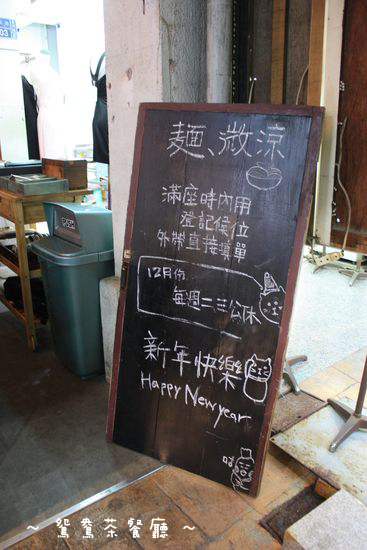 麵、微涼
滿座時內用
登記候位
外帶直接填單
12月份
每週二、三公休
新年快樂
Happy New year
~ 鴛鴦茶餐廳 ~